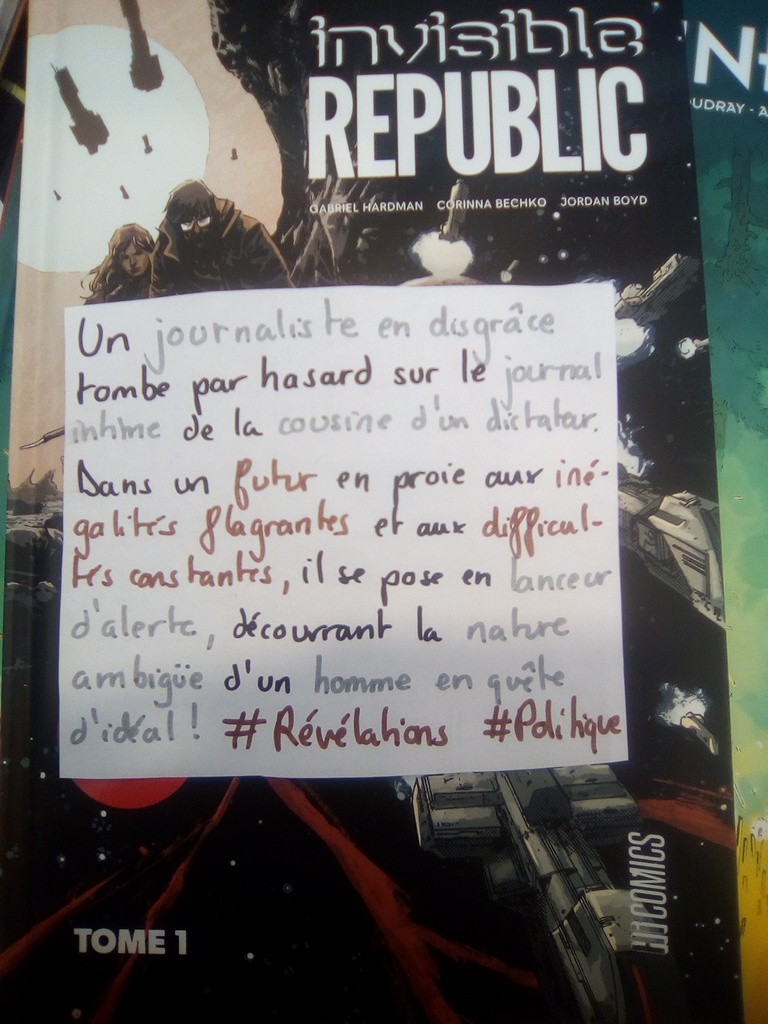 invisible
REPUBLIC
GABRIEL HARDMAN CORINNA BECHKO JORDAN BOYD
Un journaliste en disgrâce
tombe par hasard sur le journal
intime de la cousine d'un dictateur.
Dans un futur en proie aux iné-
galités flagrantes et aux difficul-
tés constantes, il se pose en lanceur
d'alerte, découvrant la nature
ambigüe d'un homme en quête
d'idéal! #Révélations #Politique
TOME 1
HICOMICS
OUDRAY - A